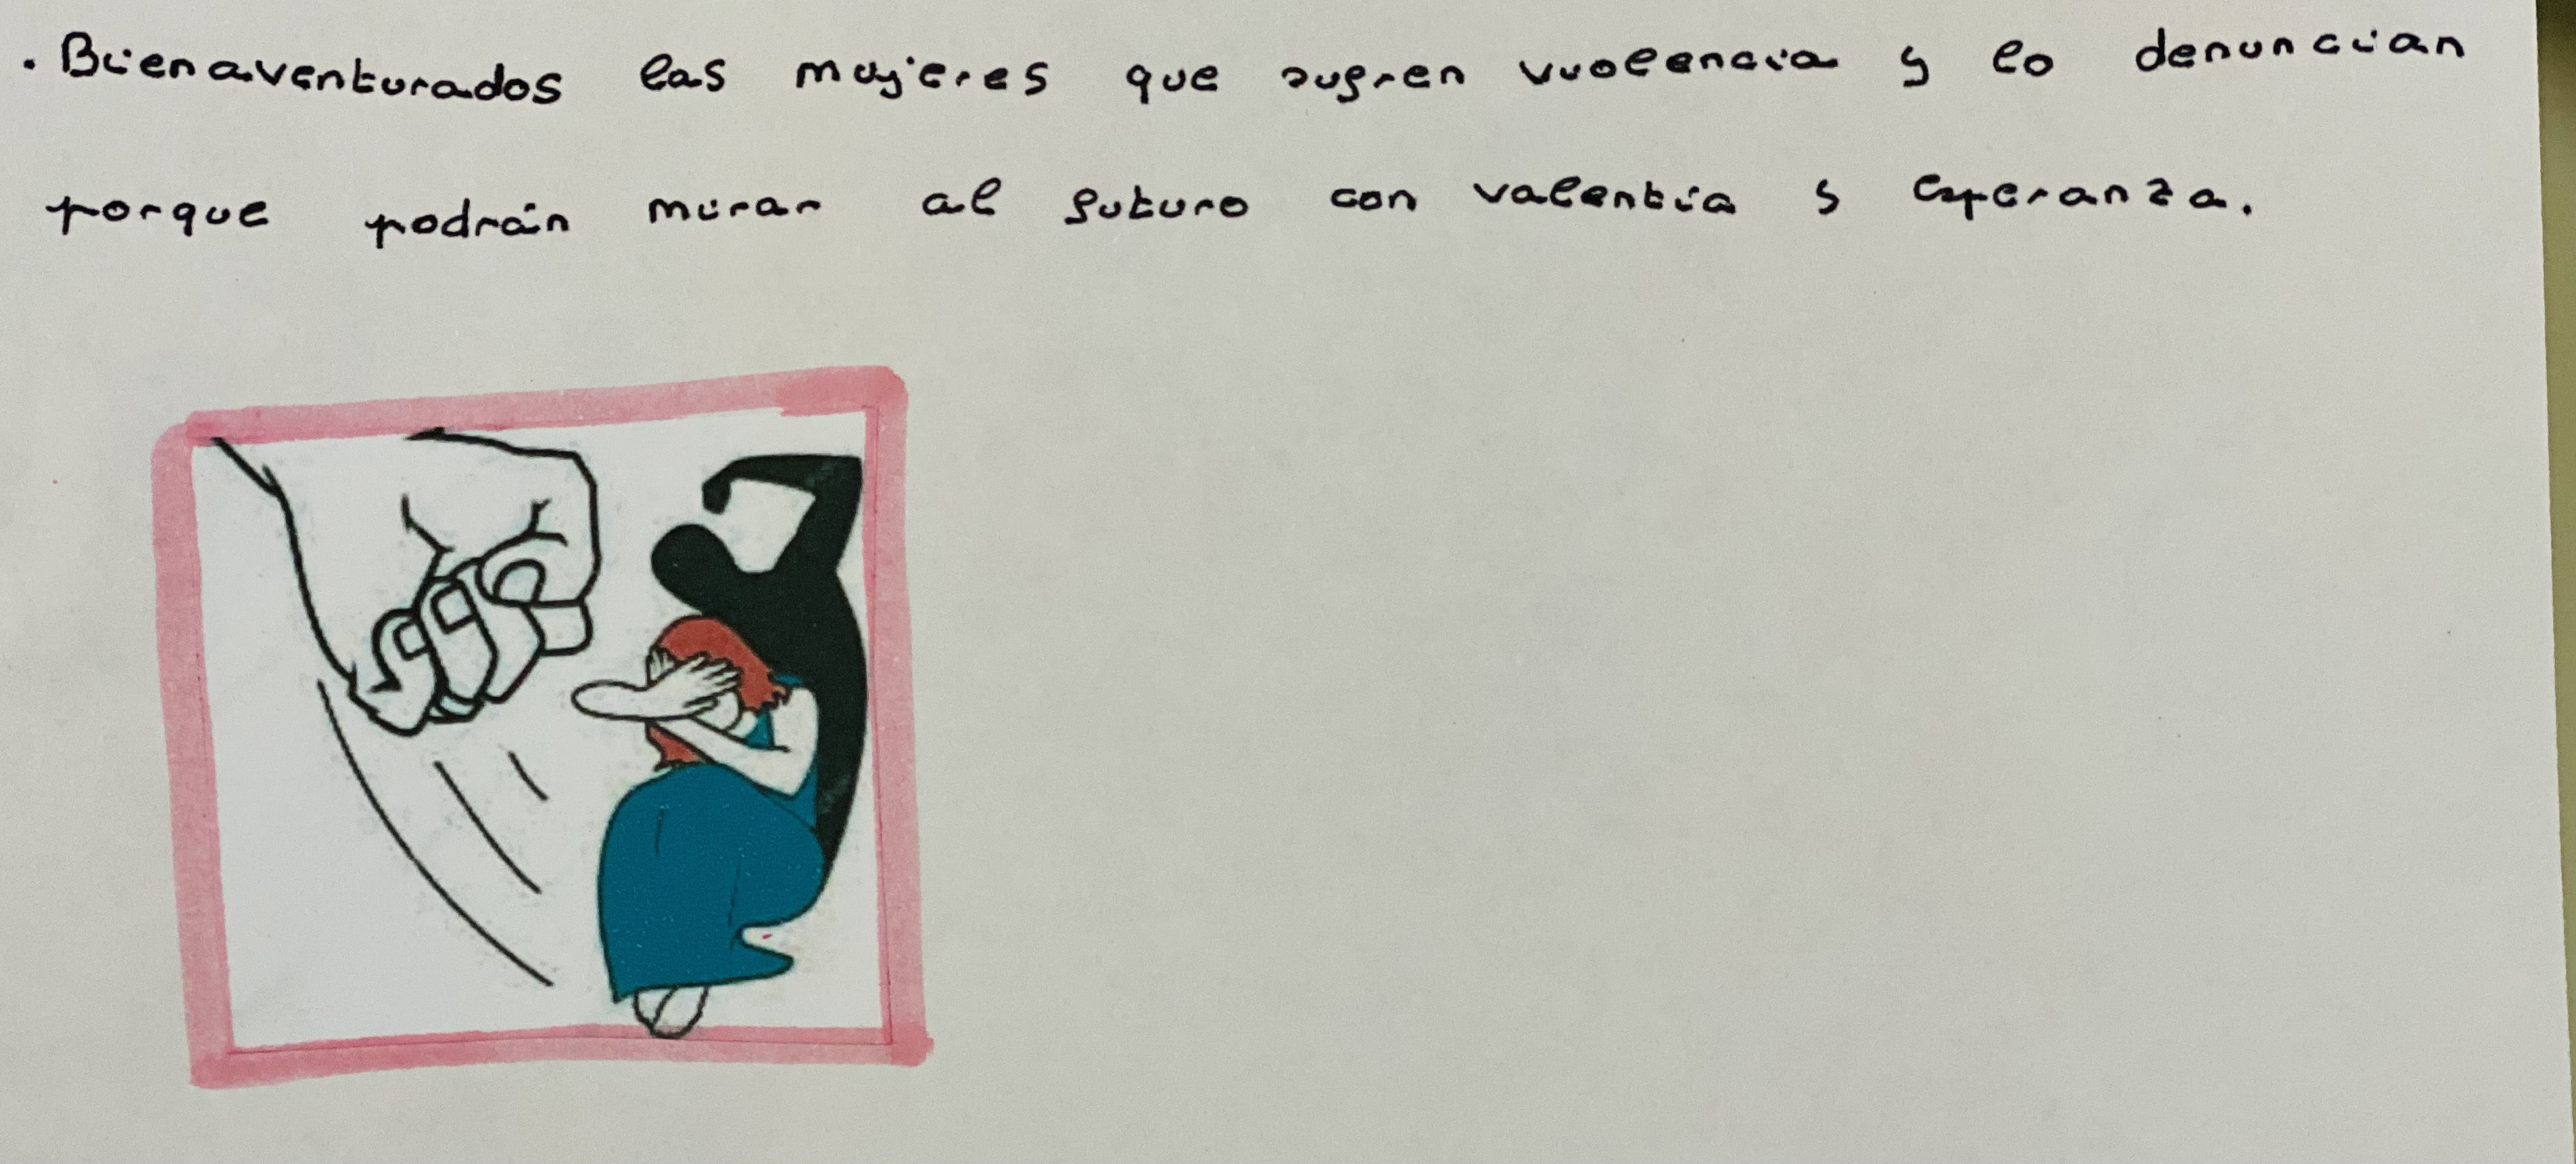 . Bienaventurados las mujeres que sufren violencia y lo denuncian
porque podrán mirar al futuro con valentía y esperanza.